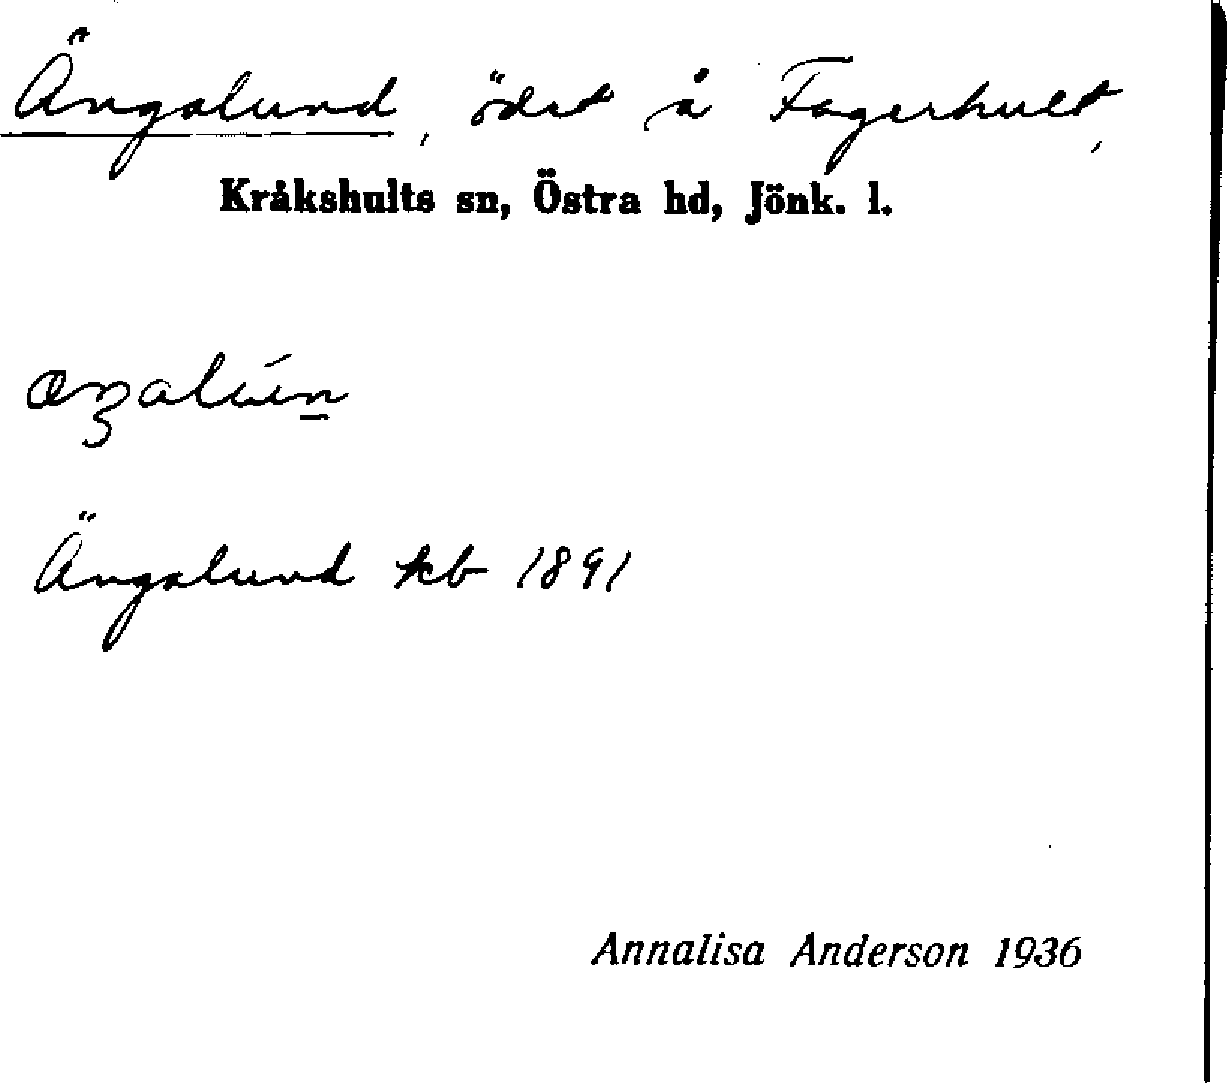 Ängalund, ödet å Fagerhult,
Kråkshults sn, Östra hd, Jönk. l.
Ängalund kb 1891
Annalisa Anderson 1936